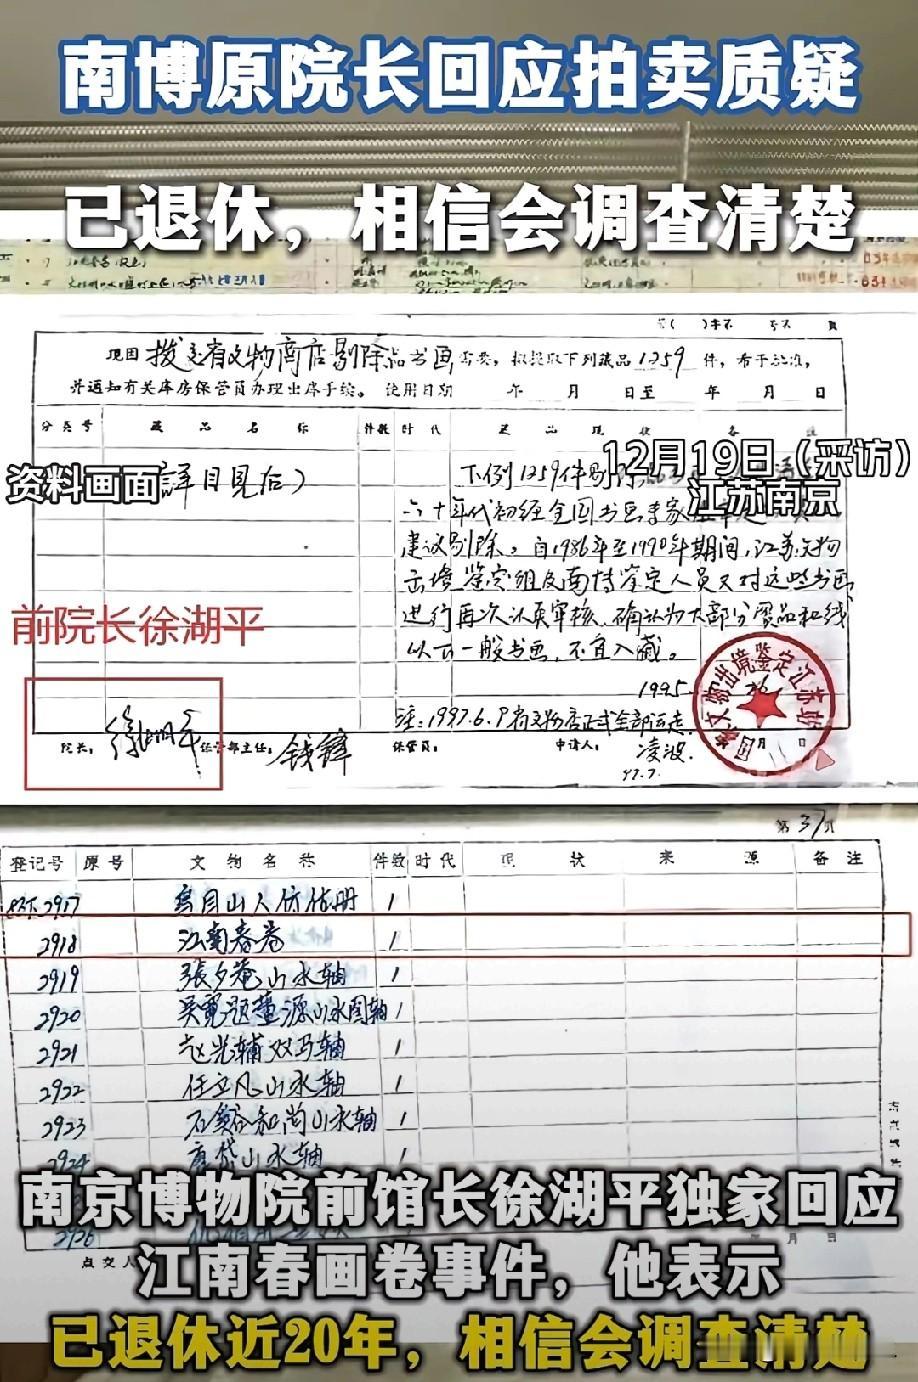 南博原院长回应拍卖质疑
已退休，相信会调查清楚
现因拨交省文物商店剔除品书画需要，拟提取下列藏品1259件，希予批准，
并通知有关库房保管员办理出库手续。使用日期 年 月 日至 年 月 日
分类号 藏品名称 件数 时代 藏品现状 备注
12月19日（采访）
江苏南京
资料画面
（详目見后）
下列1259件剔除
六十年代初经全国书画专家
建议剔除。自1986年至1990年期间，江苏文物
出境鉴定组及南博鉴定人员又对这些书画
进行再次认真审核，确认为大部分赝品和线
以下一般书画，不宜入藏。
1995
前院长徐湖平
注：1997.6.9省文物店正式全部运走
文物出境鉴定江苏
院长：徐湖平 保管部主任：钱锋 保管员： 申请人：凌波
97.7.
第37页
登记号 原号 文物名称 件数 时代 现状 来源 备注
2917 1
2918 江南春卷 1
2919 張夕菴山水轴 1
2920 吴寛题董源山水图轴 1
2921 赵光辅双马轴 1
2922 任立凡山水轴 1
2923 石溪和尚山水轴 1
2924 山水轴 1
2926
点交人
年 月 日
南京博物院前馆长徐湖平独家回应
江南春画卷事件，他表示
已退休近20年，相信会调查清楚